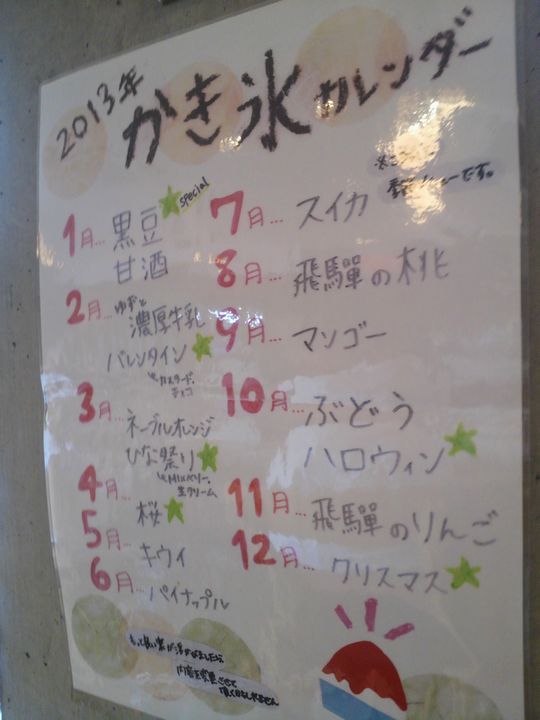 2013年
かき氷カレンダー
季節メニューです。
1月…黒豆 special
甘酒
2月…ゆずと
濃厚牛乳
バレンタイン
カスタード、
チョコ
3月…
ネーブルオレンジ
ひな祭り
MIXベリー、
生クリーム
4月…桜
5月…キウイ
6月…パイナップル
7月…スイカ
8月…飛騨の桃
9月…マンゴー
10月…ぶどう
ハロウィン
11月…飛騨のりんご
12月…クリスマス